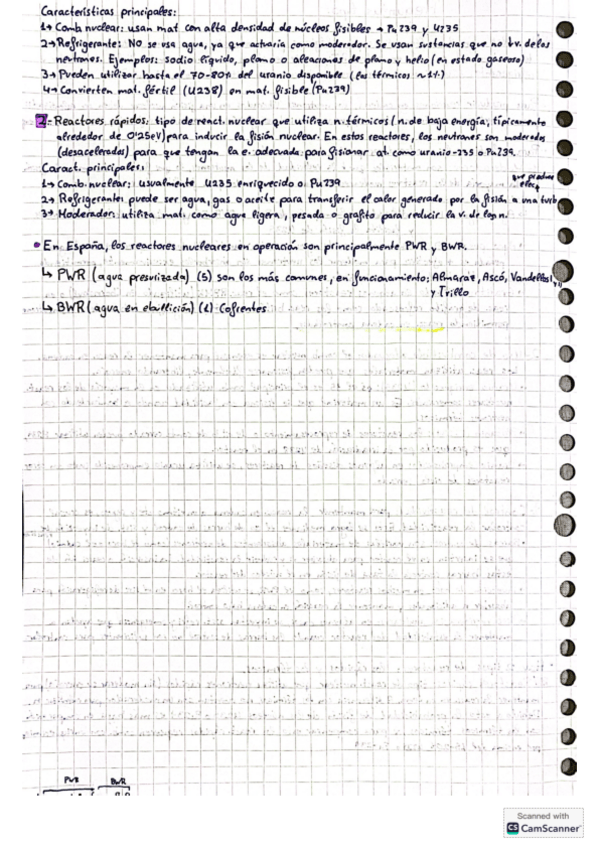 Características principales:
1→ Comb. nuclear: usan mat con alta densidad de núcleos fisibles → Pu239 y U235
2→ Refrigerante: NO se usa agua, ya que actuaría como moderador. Se usan sustancias que no ↓v. de los
neutrones. Ejemplos: sodio líquido, plomo o aleaciones de plomo y helio (en estado gaseoso)
3→ Pueden utilizar hasta el 70-80% del uranio disponible (los térmicos ~1%)
4→ Convierten mat. fértil (U238) en mat. fisible (Pu239)
2- Reactores rápidos: tipo de react. nuclear que utiliza n. térmicos (n. de baja energía, típicamente
alrededor de 0'25eV) para inducir la fisión nuclear. En estos reactores, los neutrones son moderados
(desacelerados) para que tengan la e. adecuada para fisionar at. como uranio-235 o Pu239.
Caract. principales:
1→ Comb. nuclear: usualmente U235 enriquecido o Pu239
que produce
elect.
2→ Refrigerante: puede ser agua, gas o aceite para transferir el calor generado por la fisión a una turb.
3→ Moderador: utiliza mat. como agua ligera, pesada o grafito para reducir la v. de los n.
• En España, los reactores nucleares en operación son principalmente PWR y BWR.
↳ PWR (agua presurizada) (5) son los más comunes, en funcionamiento: Almaraz, Ascó, Vandellos
y Trillo
↳ BWR (agua en ebullición) (1) Cofrentes
PWR BWR
Scanned with
CS CamScanner